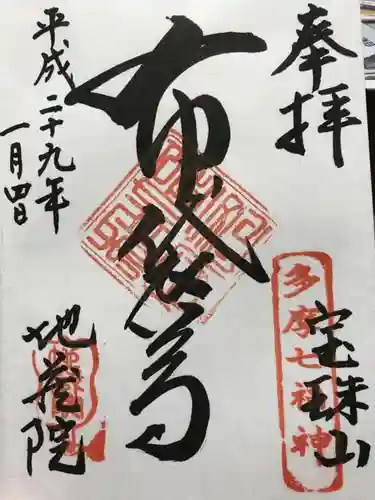 奉拝
多摩七福神
宝珠山
布袋尊
平成二十九年
一月四日
地蔵院